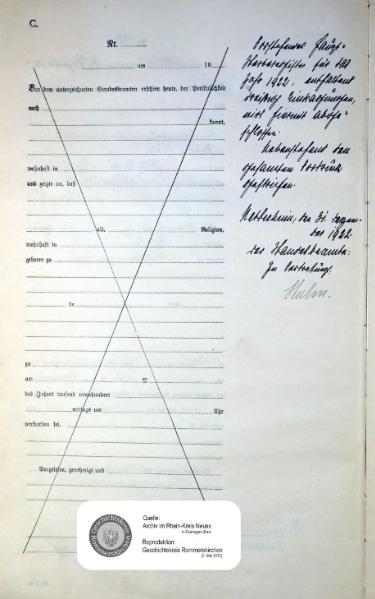 C.
Nr.
am 19
Vor dem unterzeichneten Standesbeamten erschien heute, der Persönlichkeit
nach
kannt,
wohnhaft in
und zeigte an, daß
alt, Religion,
wohnhaft in
geboren zu
de
zu
am
des Jahres tausend neunhundert
mittags um Uhr
verstorben sei.
Vorgelesen, genehmigt und
Vorstehendes Haupt-
Sterberegister für das
Jahr 1922, enthaltend
dreißig Eintragungen,
wird hiermit abge-
schlossen.
den
gestrichen.
den 31. Dezem-
ber 1922.
Der Standesbeamte.
In Vertretung.
Quelle:
Archiv im Rhein-Kreis Neuss
in Dormagen-Zons
Reproduktion:
Geschichtskreis Rommerskirchen
Geschichtskreis
Rommerskirchen